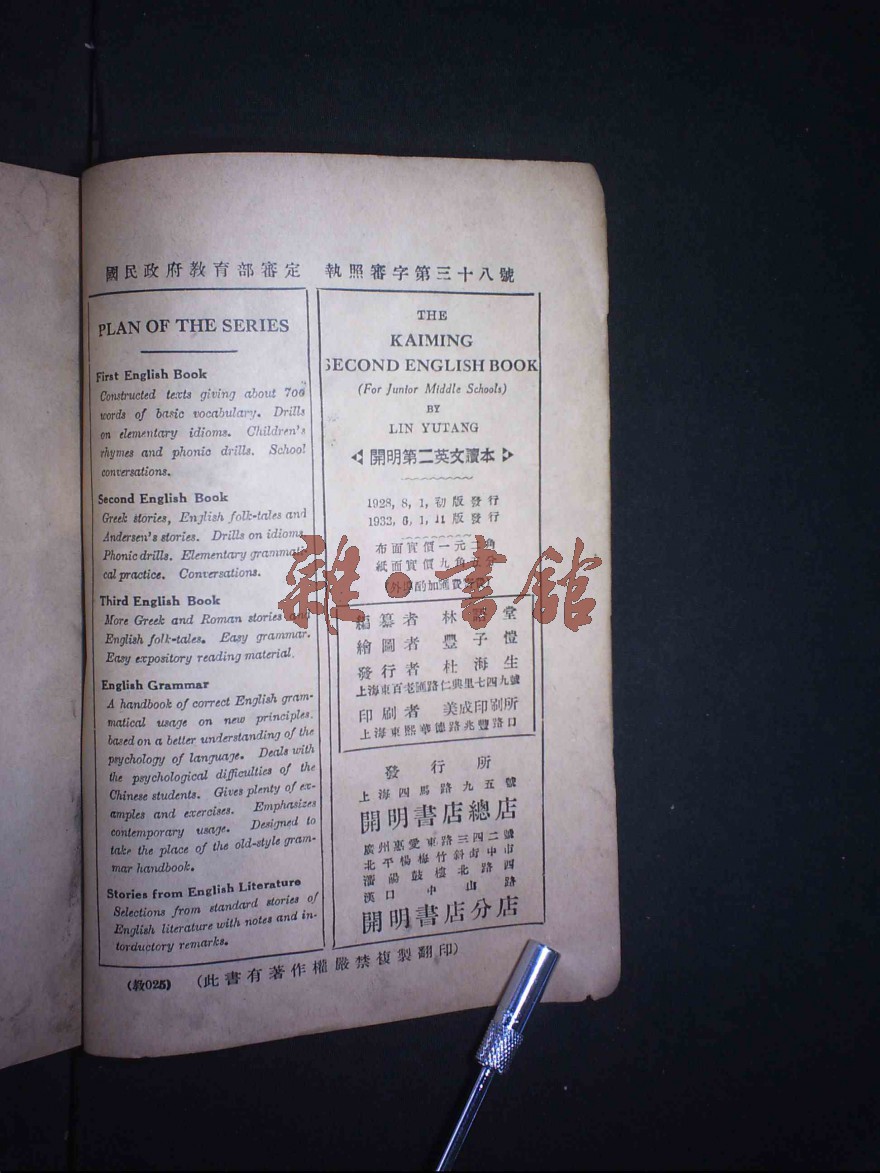 國民政府教育部審定 執照審字第三十八號
PLAN OF THE SERIES
First English Book
Constructed texts giving about 700
words of basic vocabulary. Drills
on elementary idioms. Children's
rhymes and phonic drills. School
conversations.
Second English Book
Greek stories, English folk-tales and
Andersen's stories. Drills on idioms.
Phonic drills. Elementary grammati-
cal practice. Conversations.
Third English Book
More Greek and Roman stories and
English folk-tales. Easy grammar.
Easy expository reading material.
English Grammar
A handbook of correct English gram-
matical usage on new principles,
based on a better understanding of the
psychology of language. Deals with
the psychological difficulties of the
Chinese students. Gives plenty of ex-
amples and exercises. Emphasizes
contemporary usage. Designed to
take the place of the old-style gram-
mar handbook.
Stories from English Literature
Selections from standard stories of
English literature with notes and in-
torductory remarks.
THE
KAIMING
SECOND ENGLISH BOOK
(For Junior Middle Schools)
BY
LIN YUTANG
開明第二英文讀本
1928, 8, 1, 初版發行
1933, 6, 1, 11版發行
布面實價一元二角
紙面實價九角五分
(外埠酌加運費匯費)
編纂者 林語堂
繪圖者 豐子愷
發行者 杜海生
上海東百老匯路仁興里七四九號
印刷者 美成印刷所
上海東熙華德路兆豐路口
發行所
上海四馬路九五號
開明書店總店
廣州惠愛東路三四二號
北平楊梅竹斜街中市
瀋陽鼓樓北路西
漢口中山路
開明書店分店
(教025) (此書有著作權嚴禁複製翻印)
雜·書館